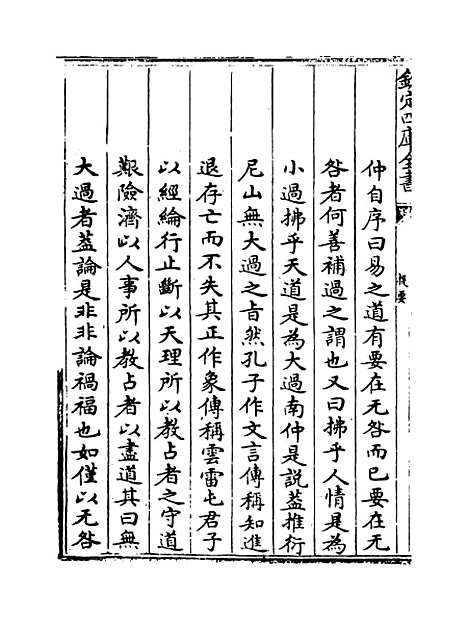 欽定四庫全書
提要
仲自序曰易之道有要在无咎而已要在无
咎者何善補過之謂也又曰拂乎人情是為
小過拂乎天道是為大過南仲是說葢推衍
尼山無大過之㫖然孔子作文言傳稱知進
退存亡而不失其正作象傳稱雲雷屯君子
以經綸行止斷以天理所以教占者之守道
艱險濟以人事所以教占者以盡道其曰無
大過者葢論是非非論禍福也如僅以无咎